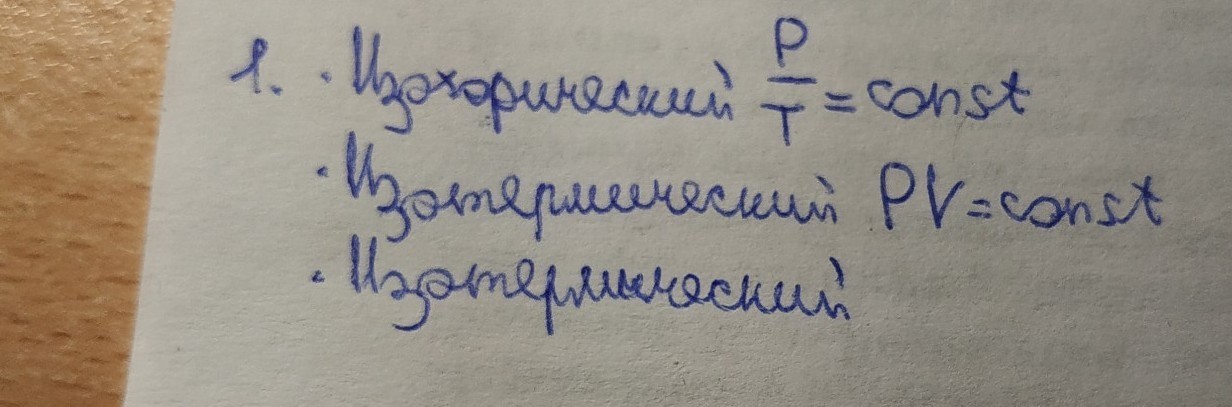 1. · Изохорический P/T = const
· Изотермический PV = const
· Изотермический